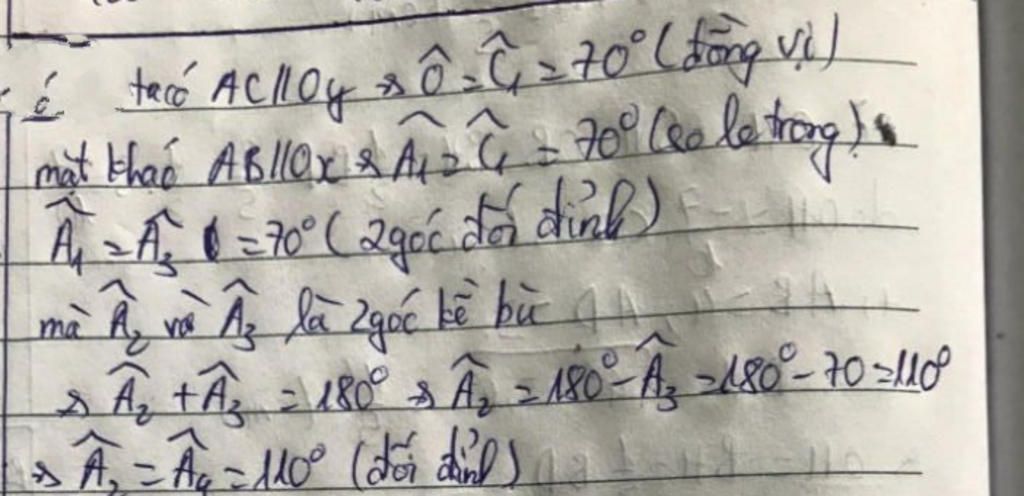 c ta có AC//Oy ⇒ Ô = Ĉ₁ = 70° (đồng vị)
mặt khác AB//Ox ⇒ Â₁ = Ĉ₁ = 70° (so le trong)
Â₁ = Â₃ = 70° (2 góc đối đỉnh)
mà Â₂ và Â₃ là 2 góc kề bù
⇒ Â₂ + Â₃ = 180° ⇒ Â₂ = 180° - Â₃ = 180° - 70 = 110°
⇒ Â₂ = Â₄ = 110° (đối đỉnh)